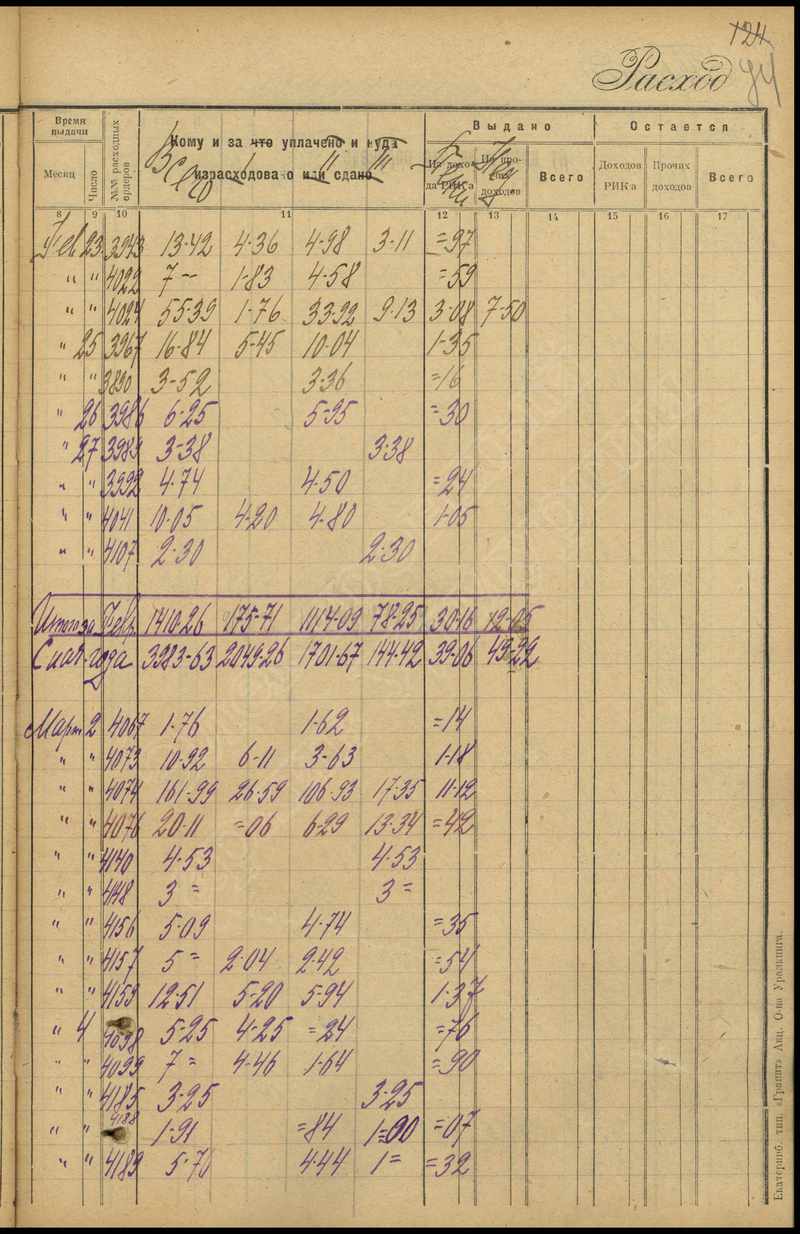 124
94
Расход
Время выдачи
№№ расходных ордеров
Кому и за что уплачено и куда израсходовано или сдано
Всего I II III
Выдано
Остается
Месяц Число
Из дохода РИК'а
Из про- доходов
Всего
Доходов РИК'а
Прочих доходов
Всего
8 9 10 11 12 13 14 15 16 17
Фев 23 3943 13-42 4-36 4-98 3-11 =97
" " 4022 7- 1-83 4-58 =59
" " 4024 55-39 1-76 33-92 9-13 3-08 7-50
" 25 3967 16-84 5-45 10-04 1-35
" " 3890 3-52 3-36 =16
" 26 3986 6-25 5-95 =30
" 27 3989 3-38 3-38
" " 3992 4-74 4-50 =24
" " 4041 10-05 4-20 4-80 1-05
" " 4107 2-30 2-30
Итого за Февр 1410-26 175-71 1114-09 78-25 30-16 12-05
С нач. года 3983-63 2049-26 1701-67 144-42 39-06 49-22
Март 2 4067 1-76 1-62 =14
" " 4073 10-92 6-11 3-63 1-18
" " 4074 161-99 26-59 106-93 17-35 11-12
" " 4076 20-11 =06 6-29 13-34 =42
" " 4140 4-53 4-53
" " 4148 3= 3=
" " 4156 5-09 4-74 =35
" " 4157 5= 2-04 2-42 =54
" " 4159 12-51 5-20 5-94 1-37
" 4 4098 5-25 4-25 =24 =76
" " 4099 7= 4-46 1-64 =90
" " 4185 3-25 3-25
" " 4188 1-91 =84 1=00 =07
" " 4189 5-76 4-44 1= =32
Екатеринб. тип. «Гранит» Акц. О-ва Уралкнига.